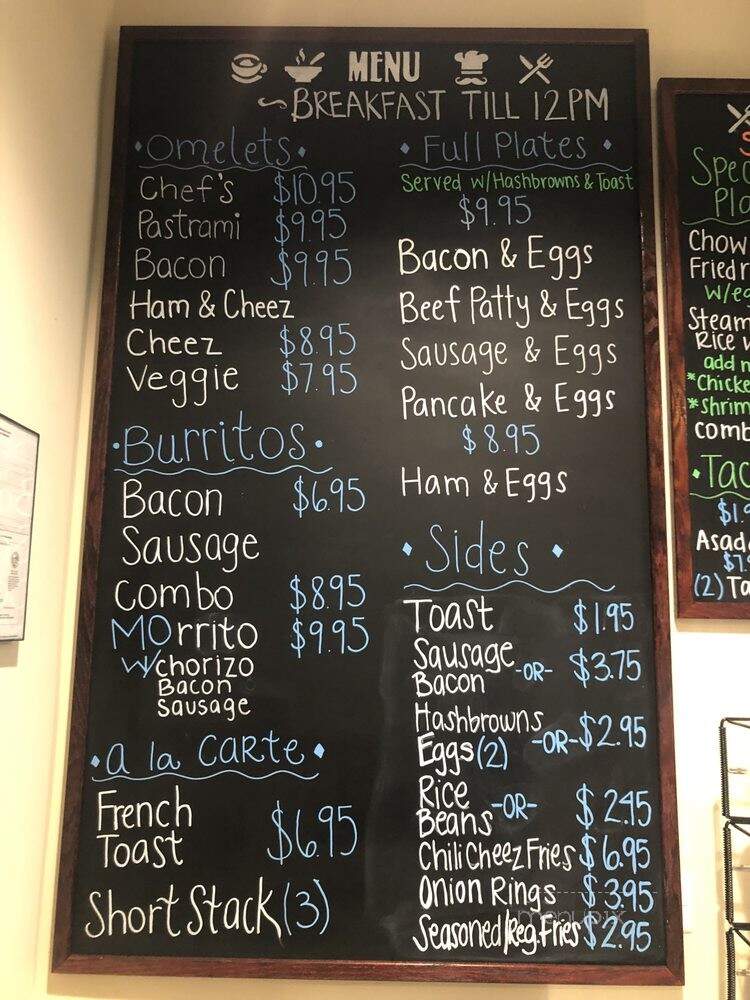 MENU
~BREAKFAST TILL 12PM
Omelets
Chef's $10.95
Pastrami $9.95
Bacon $9.95
Ham & Cheez
Cheez $8.95
Veggie $7.95
Burritos
Bacon $6.95
Sausage
Combo $8.95
MOrrito $9.95
W/chorizo
Bacon
Sausage
a la CARTe
French
Toast $6.95
Short Stack (3)
Full Plates
Served w/Hashbrowns & Toast
$9.95
Bacon & Eggs
Beef Patty & Eggs
Sausage & Eggs
Pancake & Eggs
$8.95
Ham & Eggs
Sides
Toast $1.95
Sausage -OR- $3.75
Bacon
Hashbrowns -OR- $2.95
Eggs (2)
Rice -OR- $2.45
Beans
Chili Cheez Fries $6.95
Onion Rings $3.95
Seasoned/Reg. Fries $2.95
menupix
Chow
Fried
Steam
Rice
add
*Chicke
*Shrim
comb
(2)